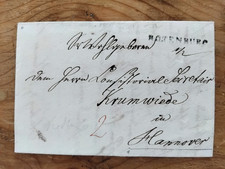 ROTENBURG
Sr Wohlgeboren
dem Herrn Consistorial Secretair
Krumwiede
in
2
Hannover